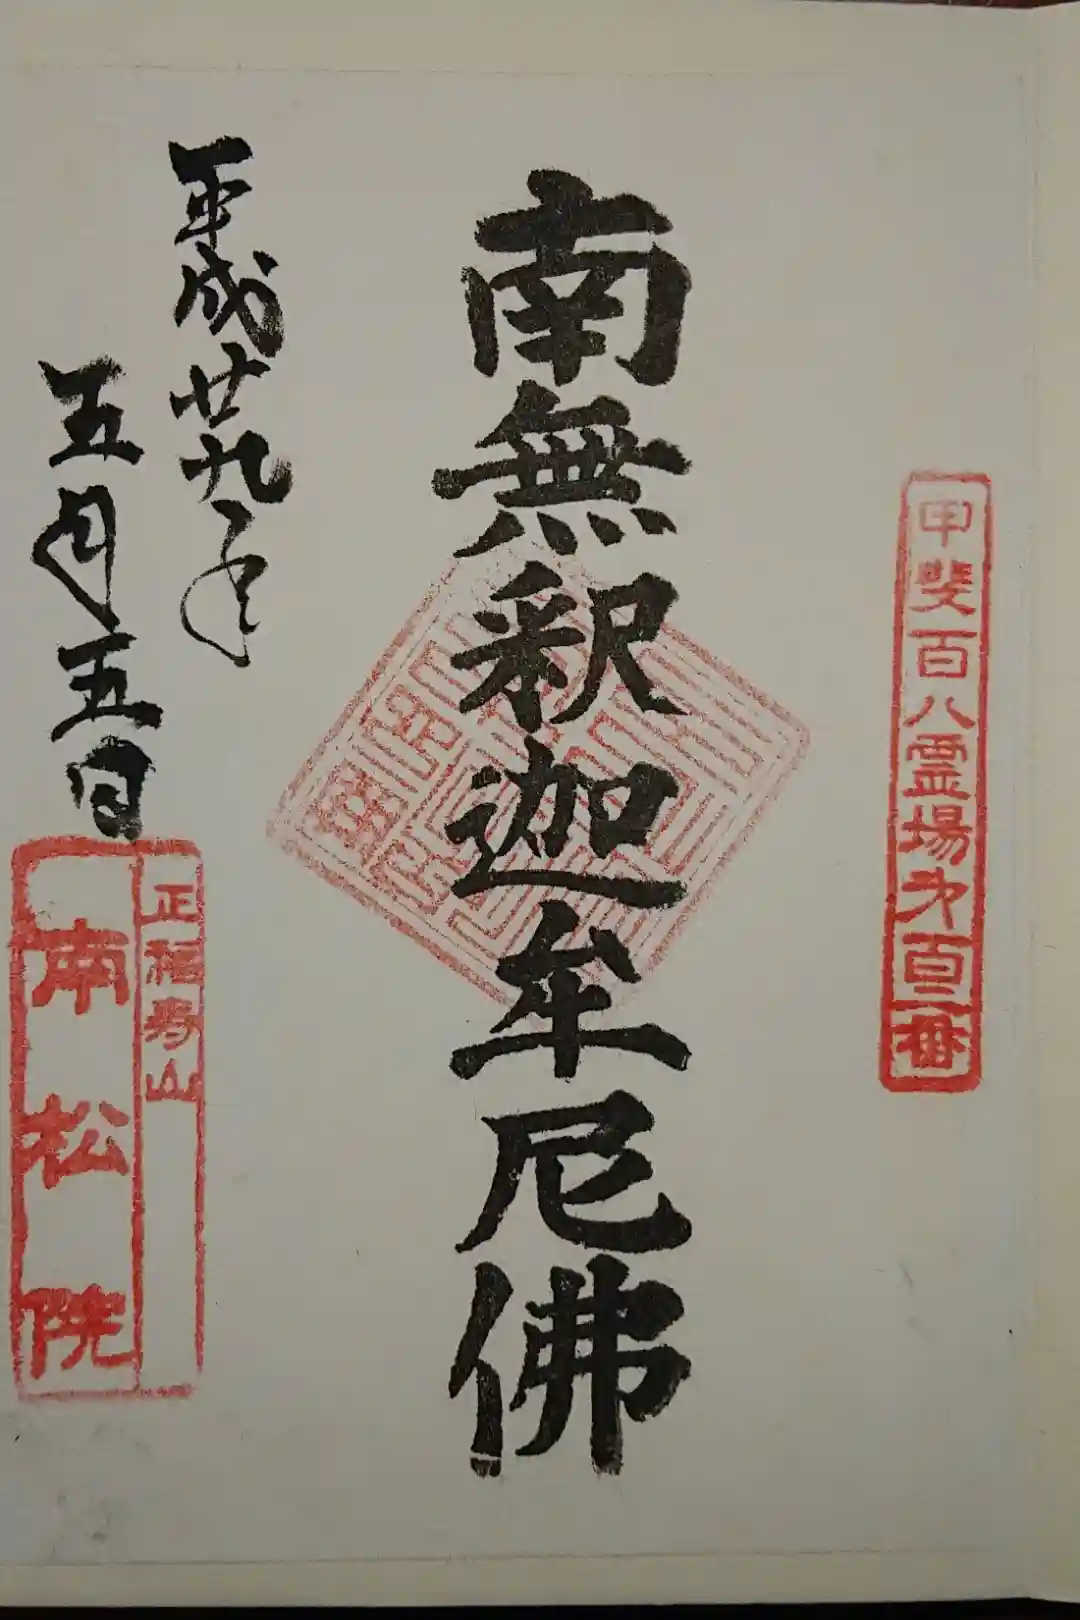 甲斐百八霊場第百二番
南無釈迦牟尼佛
平成廿九年
五月五日
正福寿山
南松院